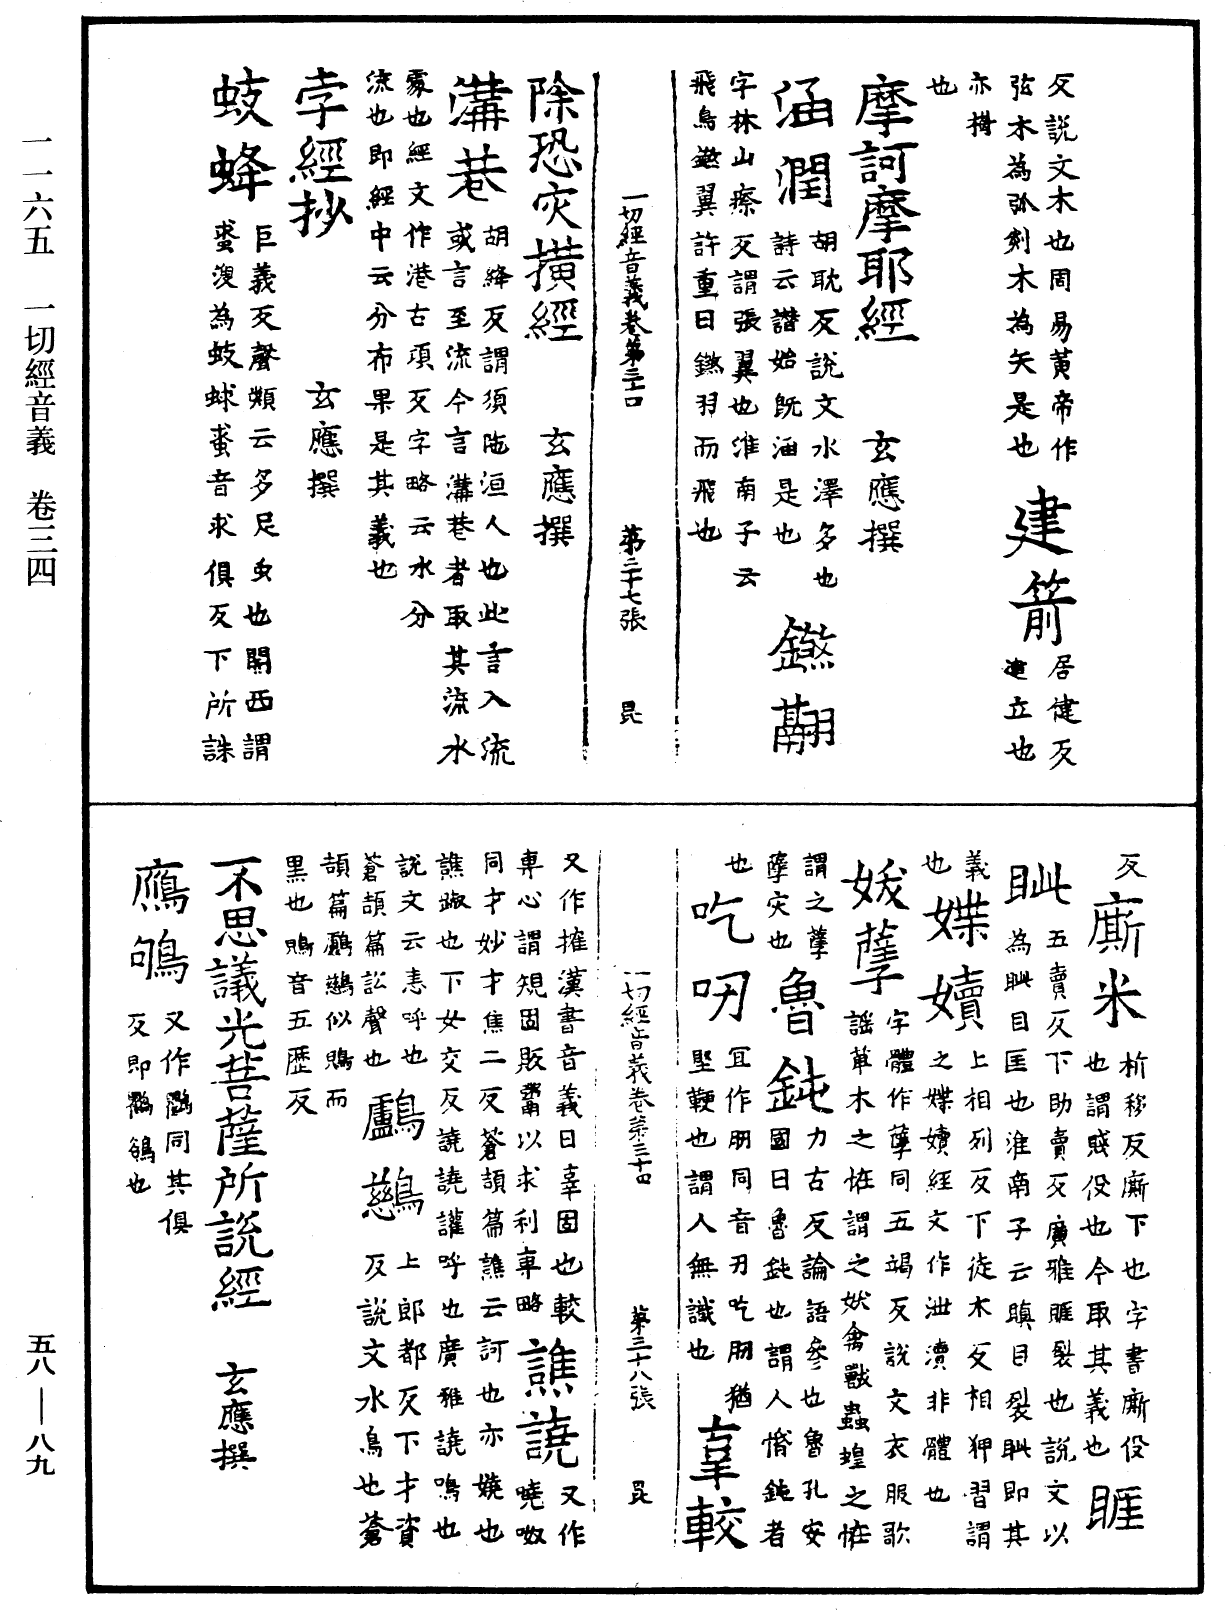 反說文木也周易黄帝作
弦木為弧剡木為矢是也
建箭
居健反
建立也
亦樹
也
摩訶摩耶經 玄應撰
涵潤
胡耽反說文水澤多也
詩云譛始既涵是也
鎩翮
字林山瘵反謂張翼也淮南子云
飛鳥鎩翼許重曰鎩羽而飛也
一切經音義卷第三十四 第三十七張 昆
除恐灾横經 玄應撰
溝巷
胡絳反謂須陁洹人也此言入流
或言至流今言溝巷者取其流水
處也經文作港古項反字略云水分
流也即經中云分布果是其義也
孛經抄 玄應撰
蚑蜂
巨義反聲類云多足虫也關西謂
蛩溲為蚑蛷蛩音求俱反下所誅
反
廝米
析移反廝下也字書廝役
也謂賤役也今取其義也
睚眦
五賣反下助賣反廣雅睚裂也說文以
為眦目匡也淮南子云瞋目裂眦即其
義
也
媟嬻
上相列反下徒木反相狎習謂
之媟嬻經文作泄瀆非體也
妭孽
字體作孽同五竭反說文衣服歌
謡草木之恠謂之妖禽獸蟲蝗之恠
謂之孽
孽灾也
魯鈍
力古反論語參也魯孔安
國曰魯鈍也謂人惛鈍者
也
吃叨
冝作肕同音刃吃肕猶
堅鞕也謂人無識也
辜較
一切經音義卷第三十四 第三十八張 昆
又作搉漢書音義曰辜固也較
專心謂規固販鬻以求利辜略
譙譊
又作
嘵呶
同才妙才焦二反蒼頡篇譙云訶也亦嬈也
譙譊也下女交反譊譊讙呼也廣雅譊鳴也
說文云恚呼也
鸕鷀
上郎都反下才資
反說文水鳥也蒼
蒼頡篇訟聲也
頡篇鸕鷀似鶂而
黒也鶂音五歴反
不思議光菩薩所說經 玄應撰
鴈鴝
又作鸜同其俱
反即鸜鵒也
一一六五 一切經音義 卷三四
五八—八九